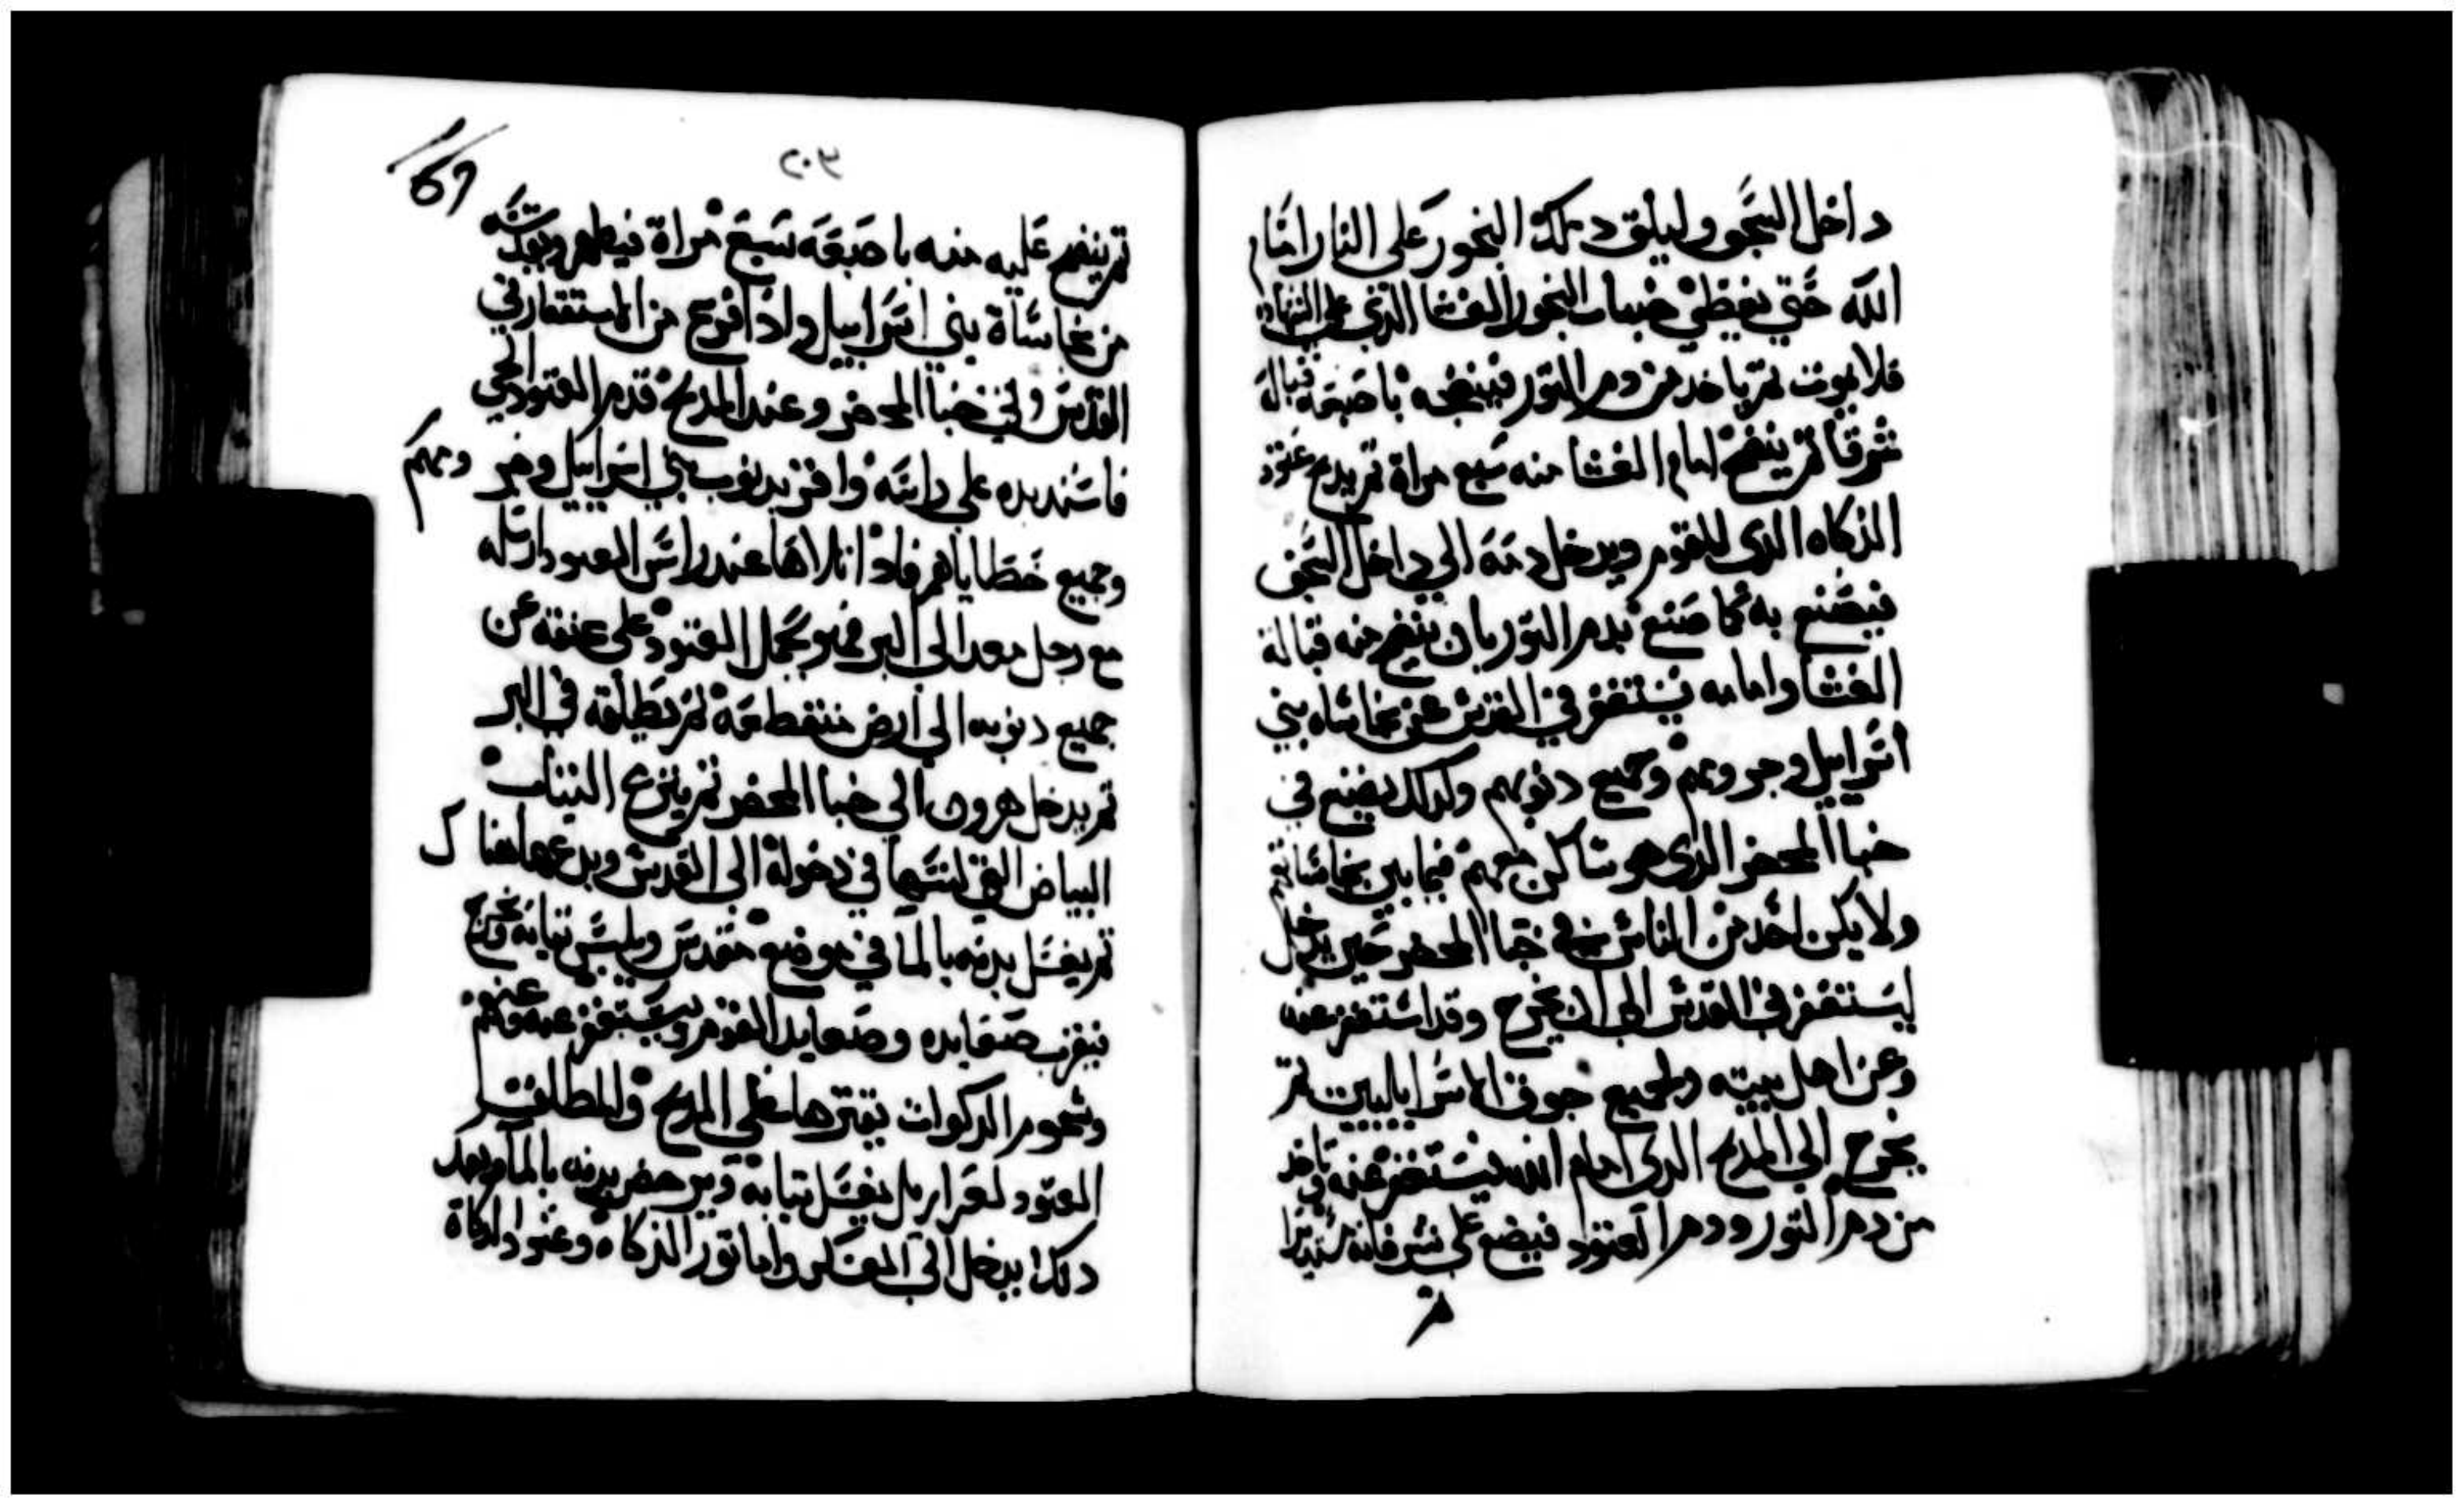 داخل السجف وليلق دلك البخور على النار امام
الله حتي يغطي ضباب البخور الغشا الذي على الشهاده
فلا يموت ثم ياخد من دم التور فينضحه باصبعه قبالة
شرقا ثم ينضح امام الغشا منه سبع مراة ثم يدبح عتود
الذكاه الذي للقوم ويدخل دمه الي داخل السجف
فيصنع به كما صنع بدم التور بان ينضح منه قبالة
الغشا وامامه يستغفر في القدس عن نجاساه بني
اسراييل وجرومهم وجميع دنوبهم وكدلك يصنع في
خبا المحضر الذي هو ساكن معهم فيما بين نجاساتهم
ولا يكن احد من الناس في خبا المحضر حين يدخل
ليستغفر في القدس الي ان يخرج وقد استغفر عنه
وعن اهل بيته ولجميع جوق الاسراياليين ثم
يخرج الي المدبح الدى امام الله يستغفر عنه وياخد
من دم التور ودم العتود فيضع على شرفاته مستديرا
ثم
69
٢٠٣
ثم ينضح عليه منه باصبعه سبع مراة فيطهره ويقدسه
من نجاساة بني اسراييل وادا فرغ من الاستغفار في
القدس وفي خبا المحضر وعند المدبح قدم العتود الحي
فاسند يده على راسه واقر بدنوب بني اسراييل وجر ومهم
وجميع خطاياهم فادا تلاها عند راس العتود ارسله
مع رجل معد الى البر فهو يحمل العتود على عنقه عن
جميع دنوبه الي ارض منقطعة ثم يطلقه في البر
ثم يدخل هرون الي خبا المحضر ثم ينزع التياب
البياض التي لبسها في دخولة الى القدس ويدعها هناك
ثم يغسل بدنه بالما في موضع مقدس ويلبس تيابه ويخرج
فيقرب صعايده وصعايد القوم ويستغفر عنه وعنهم
وشحوم الدكوات يقترها على المدبح والمطالق
العتود لعزازيل يغسل تيابه ويرحض بدنه بالما وبعد
دلك يدخل الي العسكر واما تور الذكاه وعتود الدكاة